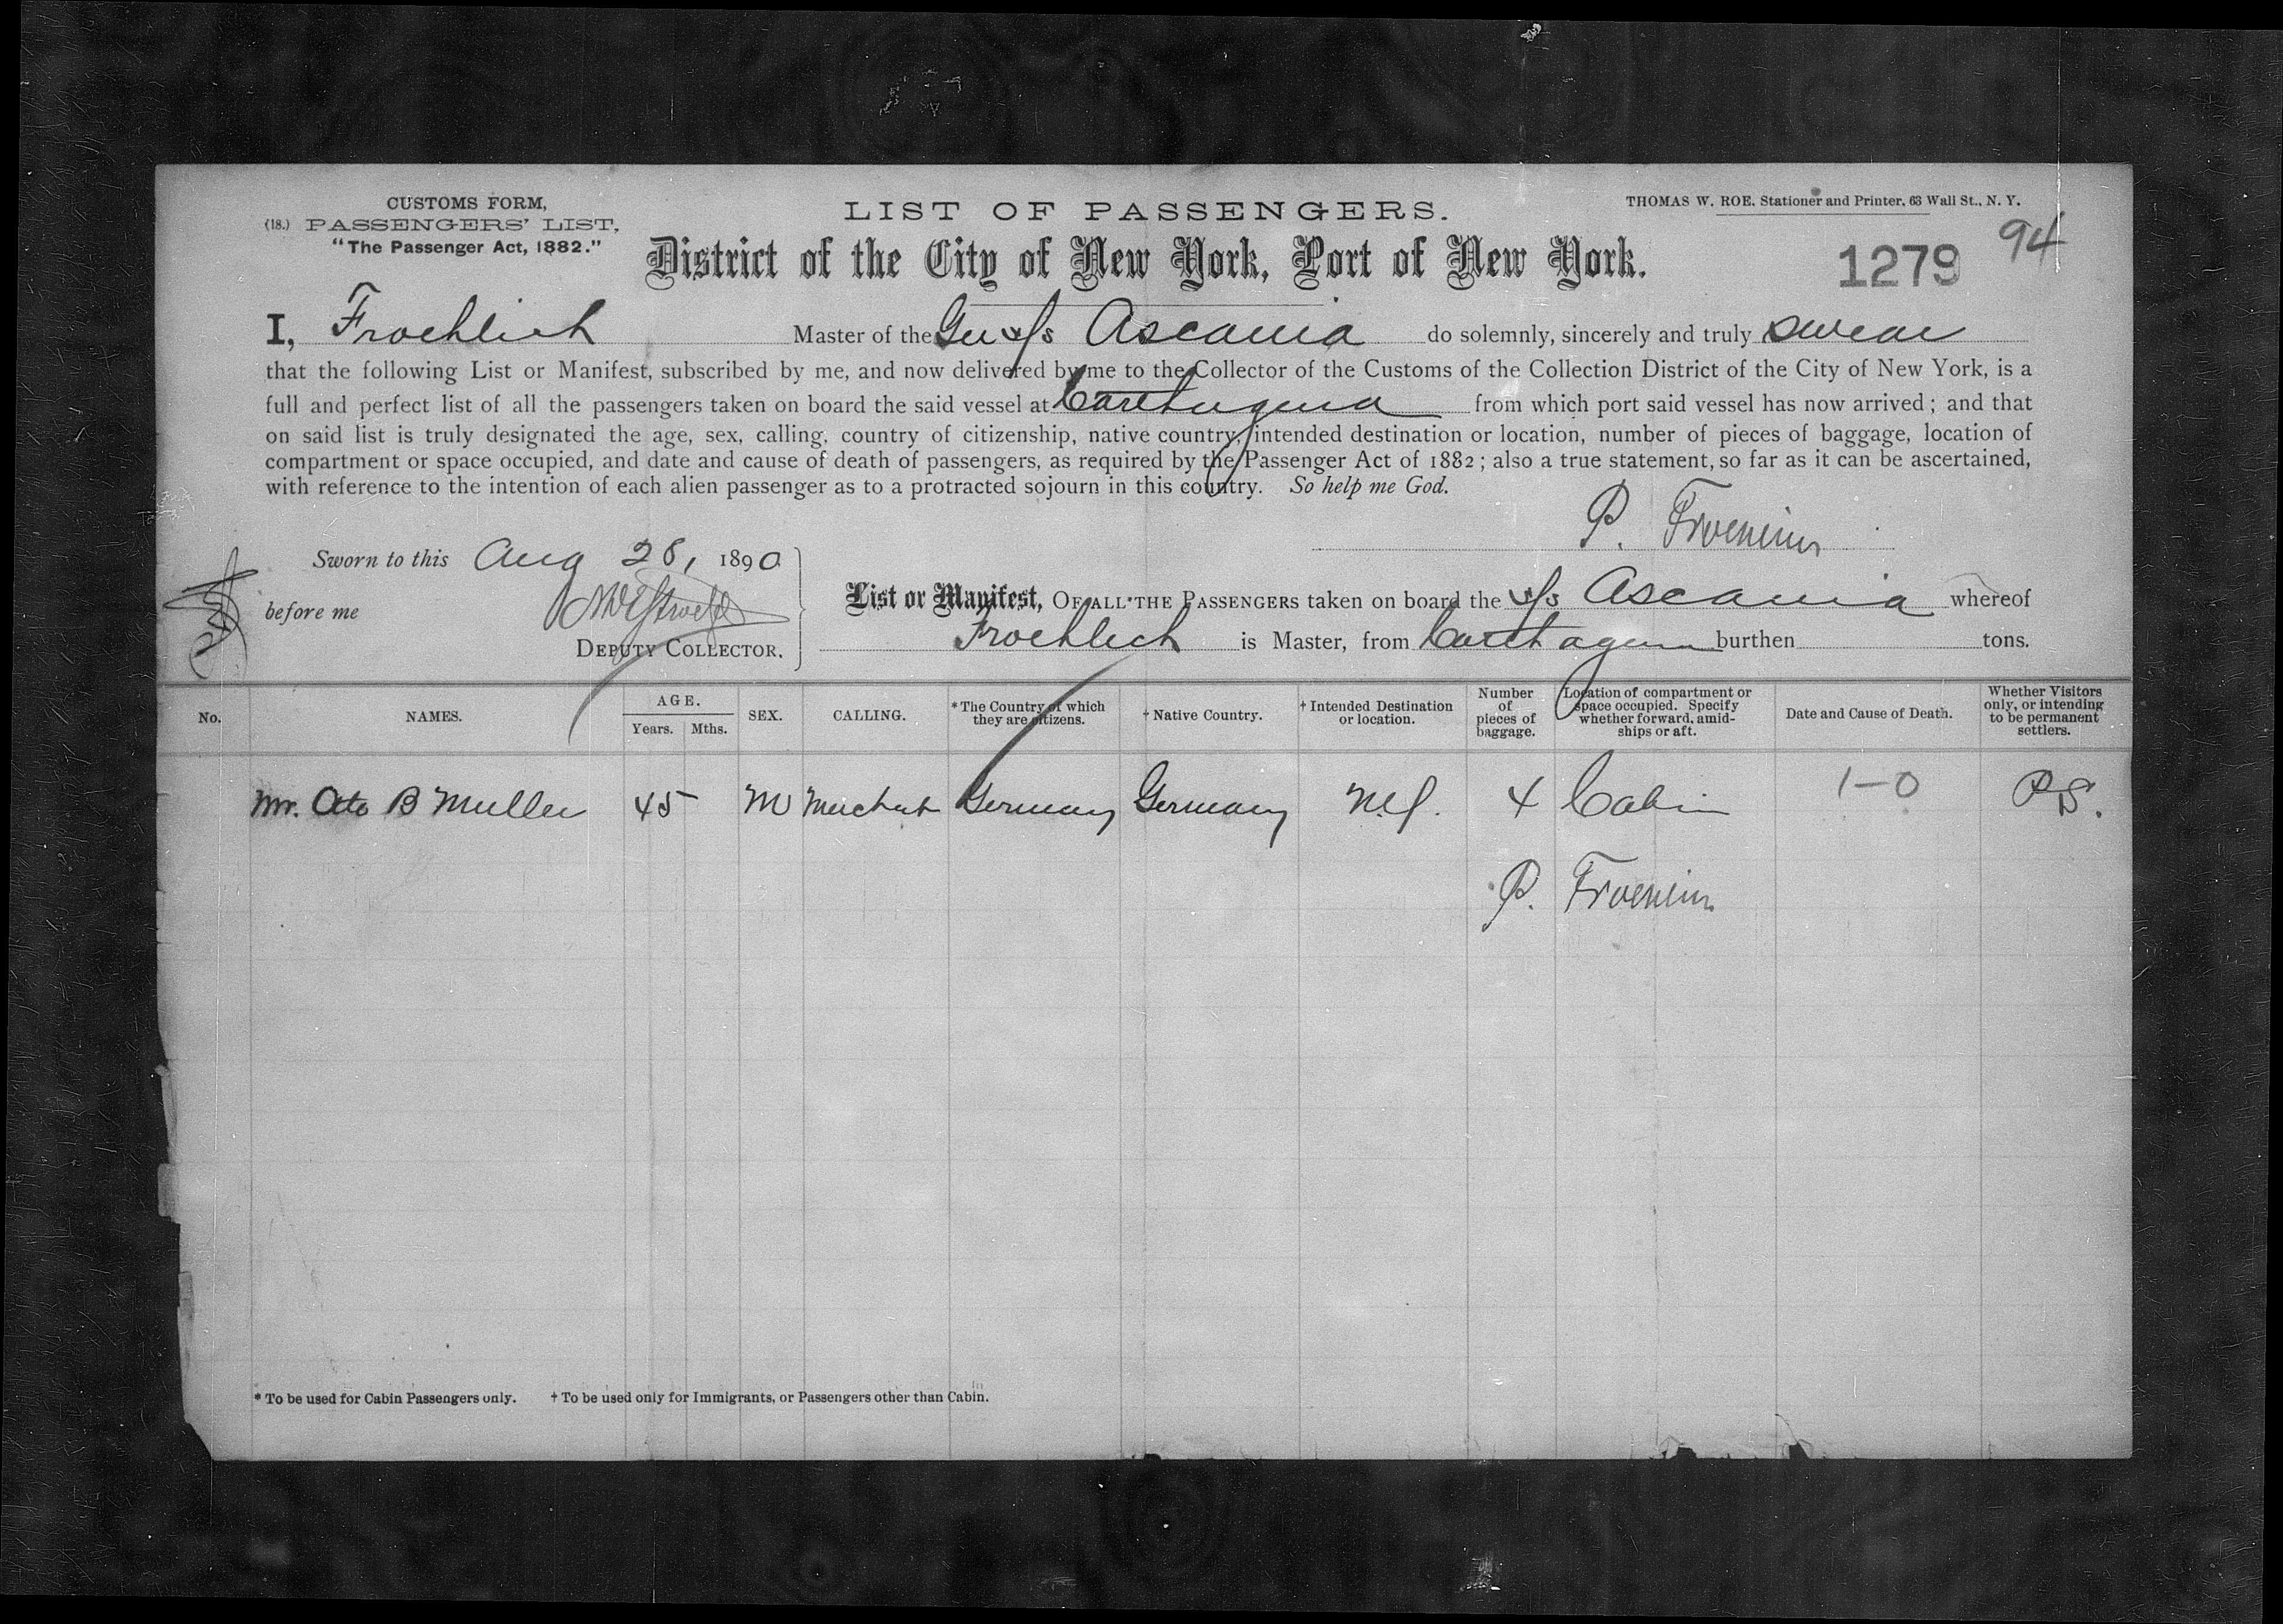 CUSTOMS FORM,
(18.) PASSENGERS' LIST,
"The Passenger Act, 1882."
LIST OF PASSENGERS.
THOMAS W. ROE, Stationer and Printer, 63 Wall St., N. Y.
District of the City of New York, Port of New York.
1279 94
I, Froehlich Master of the Ger s/s Ascania do solemnly, sincerely and truly swear
that the following List or Manifest, subscribed by me, and now delivered by me to the Collector of the Customs of the Collection District of the City of New York, is a
full and perfect list of all the passengers taken on board the said vessel at Carthagena from which port said vessel has now arrived; and that
on said list is truly designated the age, sex, calling, country of citizenship, native country, intended destination or location, number of pieces of baggage, location of
compartment or space occupied, and date and cause of death of passengers, as required by the Passenger Act of 1882; also a true statement, so far as it can be ascertained,
with reference to the intention of each alien passenger as to a protracted sojourn in this country. So help me God.
P.
Sworn to this Aug 28, 1890
before me
DEPUTY COLLECTOR.
List or Manifest, OF ALL THE PASSENGERS taken on board the s/s Ascania whereof
Froehlich is Master, from Carthagena burthen tons.
No. NAMES. AGE. Years. Mths. SEX. CALLING. *The Country of which they are citizens. †Native Country. †Intended Destination or location. Number of pieces of baggage. Location of compartment or space occupied. Specify whether forward, amid-ships or aft. Date and Cause of Death. Whether Visitors only, or intending to be permanent settlers.
Mr. Otto B Muller 45 M Merchant Germany Germany N.Y. 4 Cabin 1-0 P.S.
P.
* To be used for Cabin Passengers only. † To be used only for Immigrants, or Passengers other than Cabin.